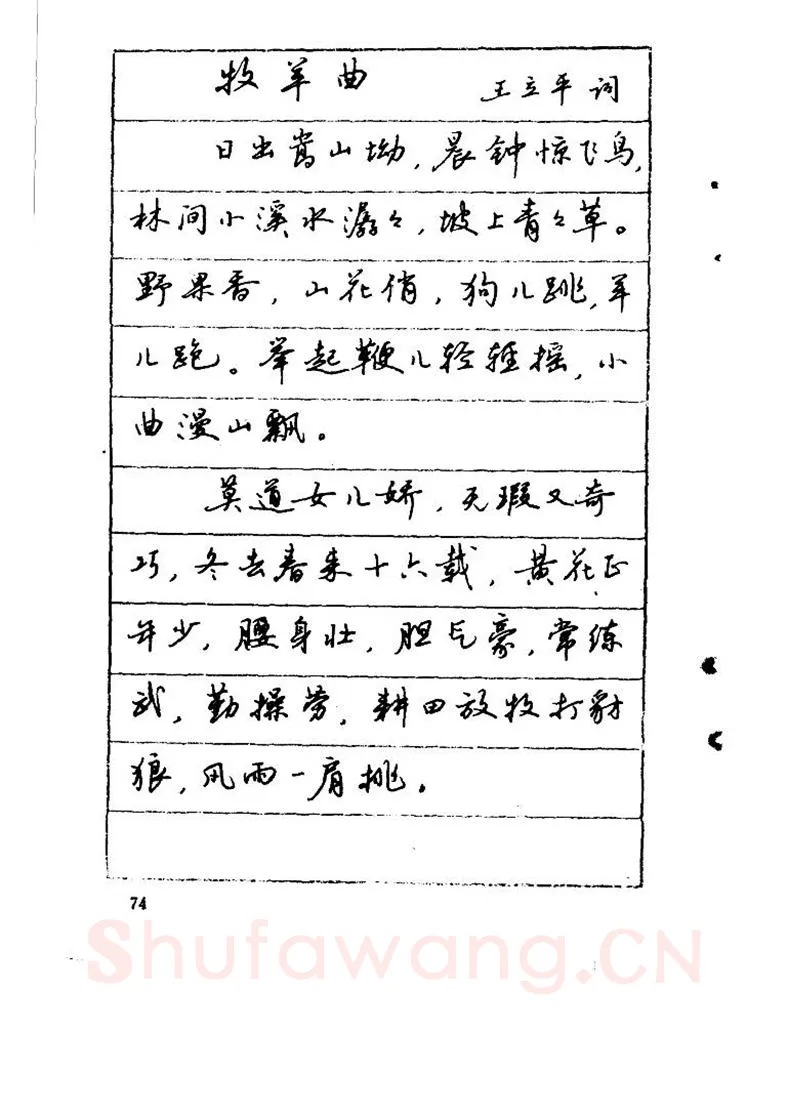 牧羊曲 王立平词
日出嵩山坳，晨钟惊飞鸟，
林间小溪水潺々，坡上青々草。
野果香，山花俏，狗儿跳，羊
儿跑。举起鞭儿轻轻摇，小
曲漫山飘。
莫道女儿娇，无瑕又奇
巧，冬去春来十六载，黄花正
年少，腰身壮，胆气豪，常练
武，勤操劳，耕田放牧打豺
狼，风雨一肩挑。
74
Shufawang.CN